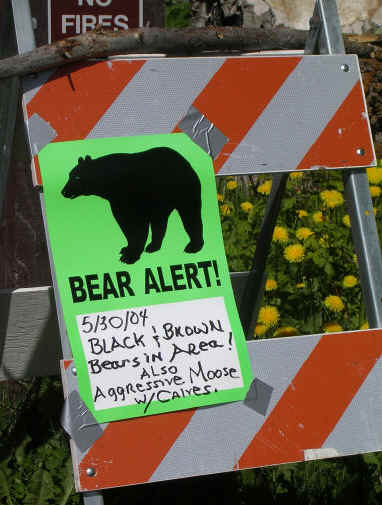 NO
FIRES
BEAR ALERT!
5/30/04
BLACK & BROWN
Bears in Area!
ALSO
Aggressive Moose
w/Calves.